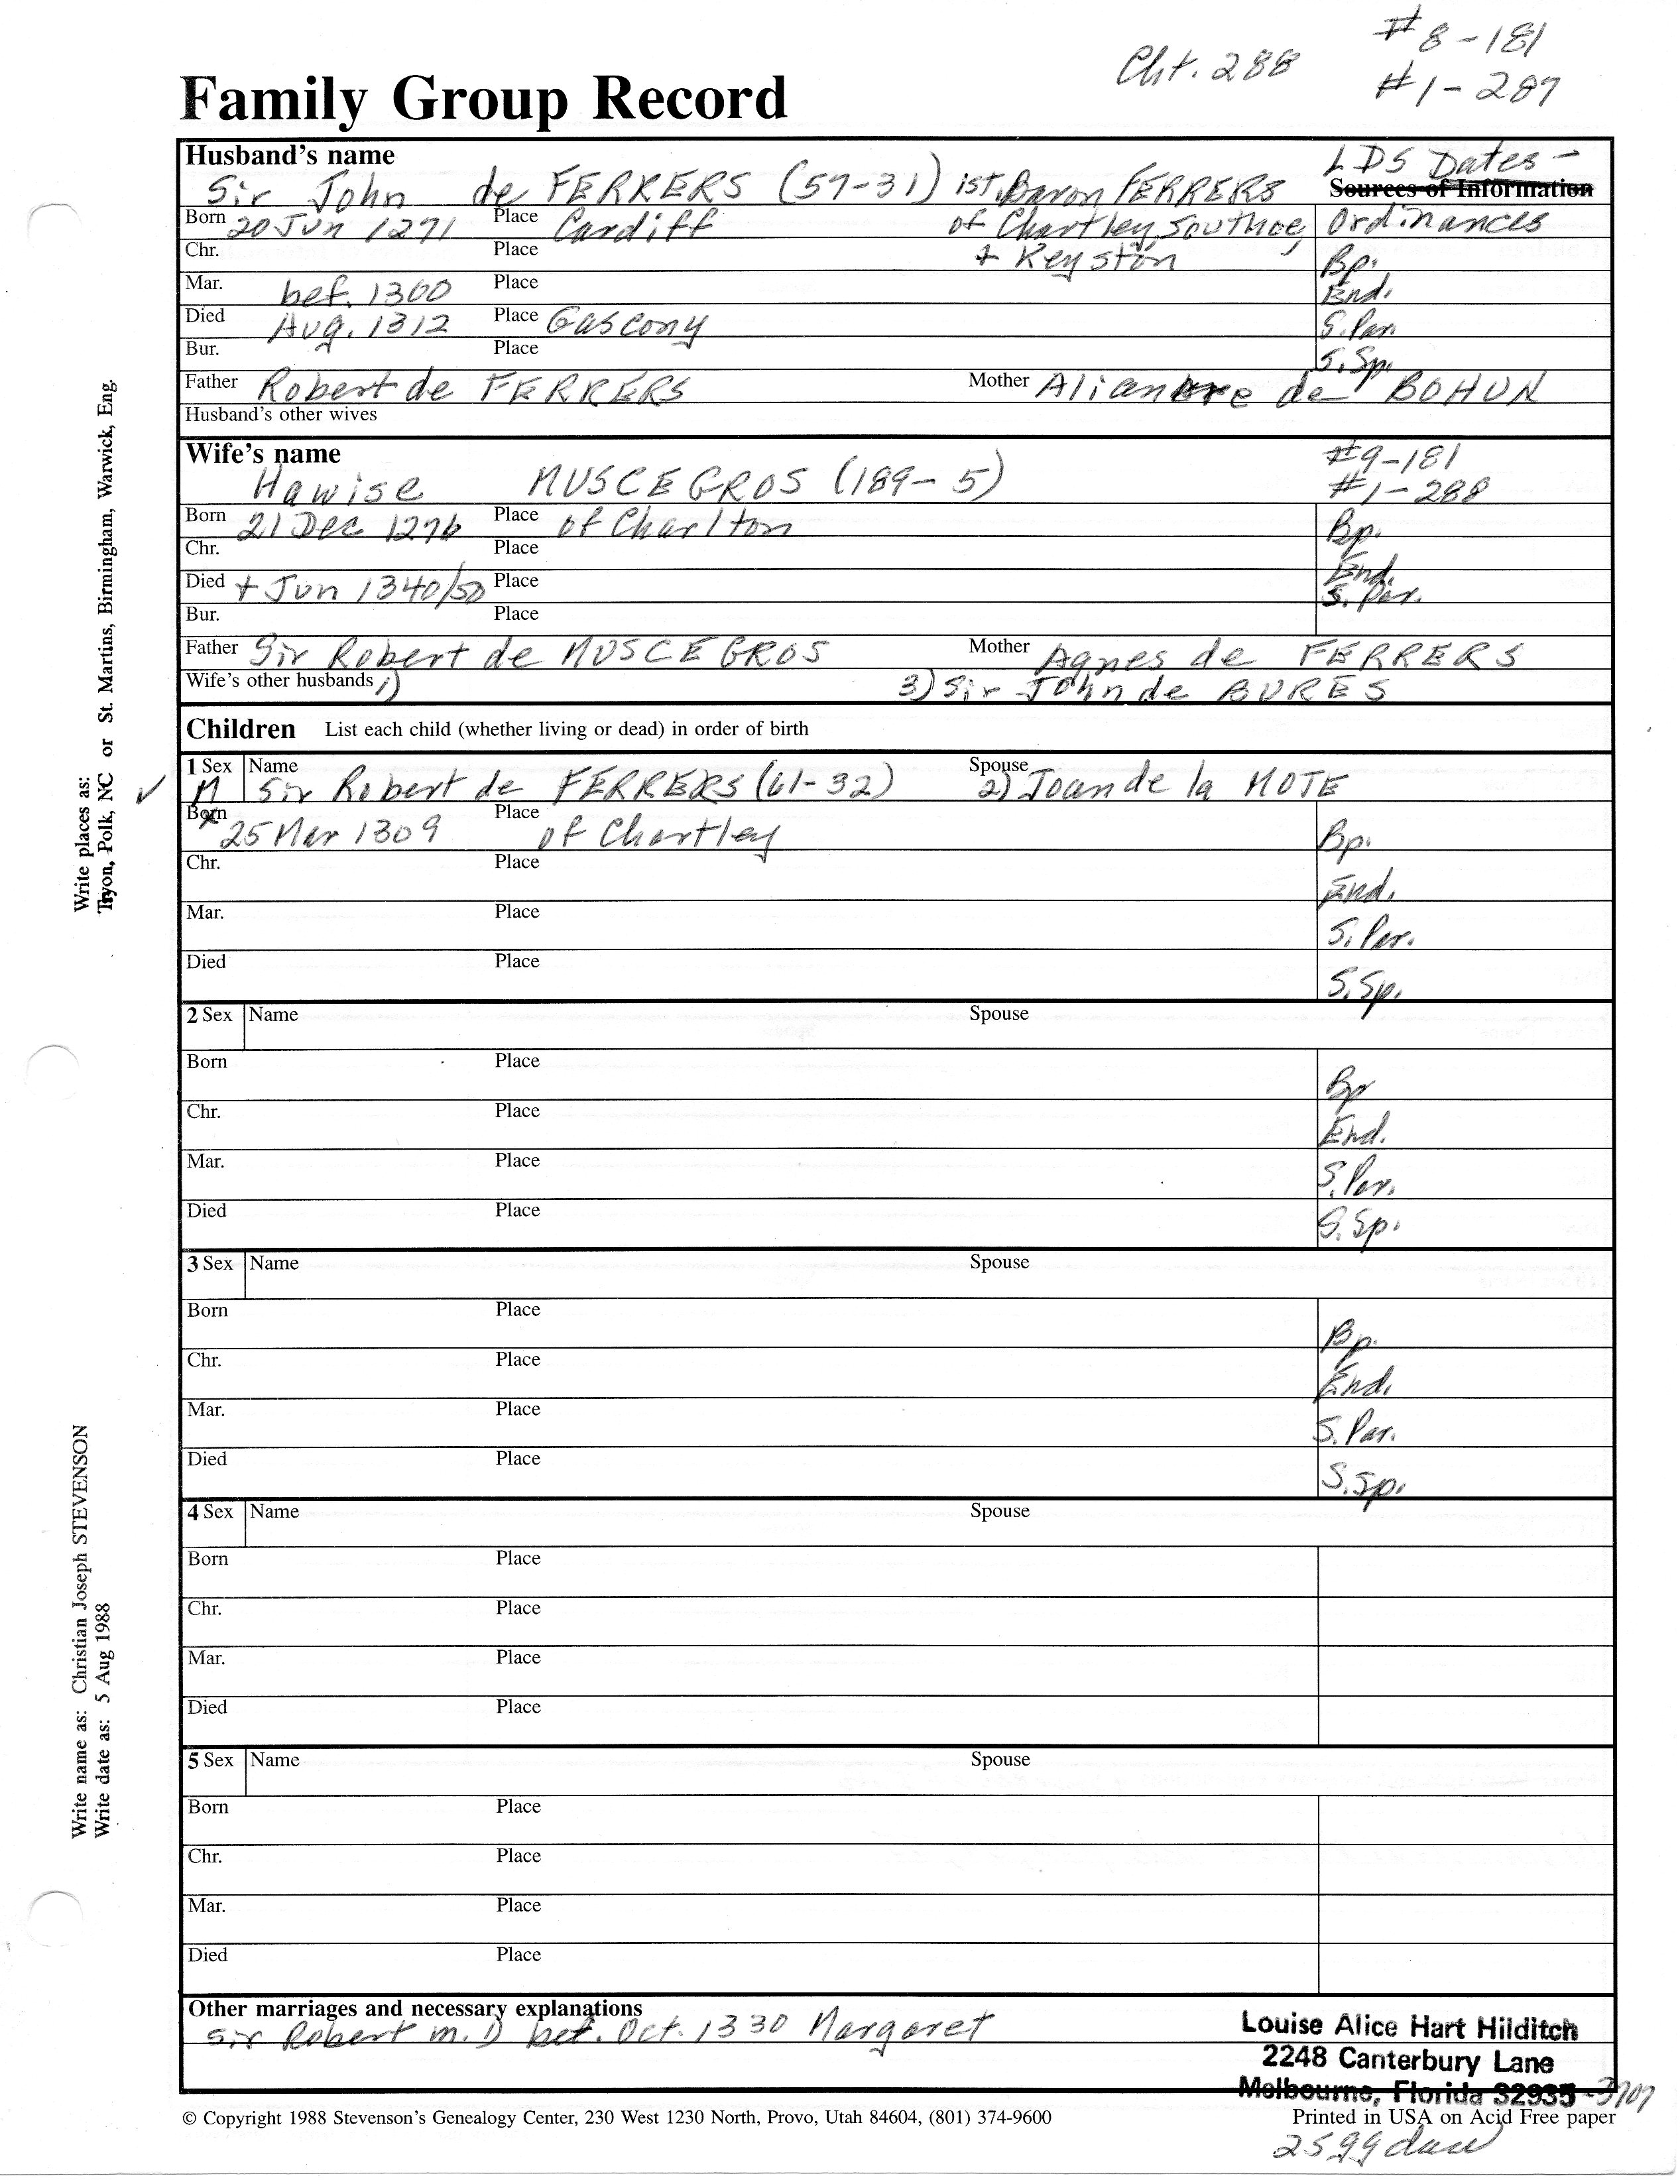 Cht. 288
#8-181
#1-287
Family Group Record
Husband's name
LDS Dates-
Sir John de FERRERS (57-31) ist. Baron FERRERS
Sources of Information
Born 20 Jun 1271 Place Cardiff of Chartley, Southoe, Ordinances
Chr. Place + Keyston Bp.
Mar. bef. 1300 Place End.
Died Aug. 1312 Place Gascony S. Par.
Bur. Place S. Sp.
Father Robert de FERRERS Mother de BOHUN
Husband's other wives
Wife's name #9-181
Hawise MUSCEGROS (189-5) #1-288
Born 21 Dec 1276 Place of Charlton Bp.
Chr. Place
Died + Jun 1340/50 Place End.
S. Par.
Bur. Place
Father Sir Robert de MUSCEGROS Mother Agnes de FERRERS
Wife's other husbands 1) 3) Sir John de BURES
Children List each child (whether living or dead) in order of birth
1 Sex Name Spouse
M Sir Robert de FERRERS (61-32) 2) Joan de la MOTE
Born 25 Mar 1309 Place of Chartley Bp.
Chr. Place End.
Mar. Place S. Par.
Died Place S. Sp.
2 Sex Name Spouse
Born Place Bp
Chr. Place End.
Mar. Place S. Par.
Died Place S. Sp.
3 Sex Name Spouse
Born Place Bp.
Chr. Place End.
Mar. Place S. Par.
Died Place S. Sp.
4 Sex Name Spouse
Born Place
Chr. Place
Mar. Place
Died Place
5 Sex Name Spouse
Born Place
Chr. Place
Mar. Place
Died Place
Other marriages and necessary explanations
Sir Robert m. 1) bef. Oct. 1330 Margaret
Louise Alice Hart Hilditch
2248 Canterbury Lane
Melbourne, Florida 32935
© Copyright 1988 Stevenson's Genealogy Center, 230 West 1230 North, Provo, Utah 84604, (801) 374-9600
Printed in USA on Acid Free paper
Write places as:
Tryon, Polk, NC or St. Martins, Birmingham, Warwick, Eng.
Write name as: Christian Joseph STEVENSON
Write date as: 5 Aug 1988